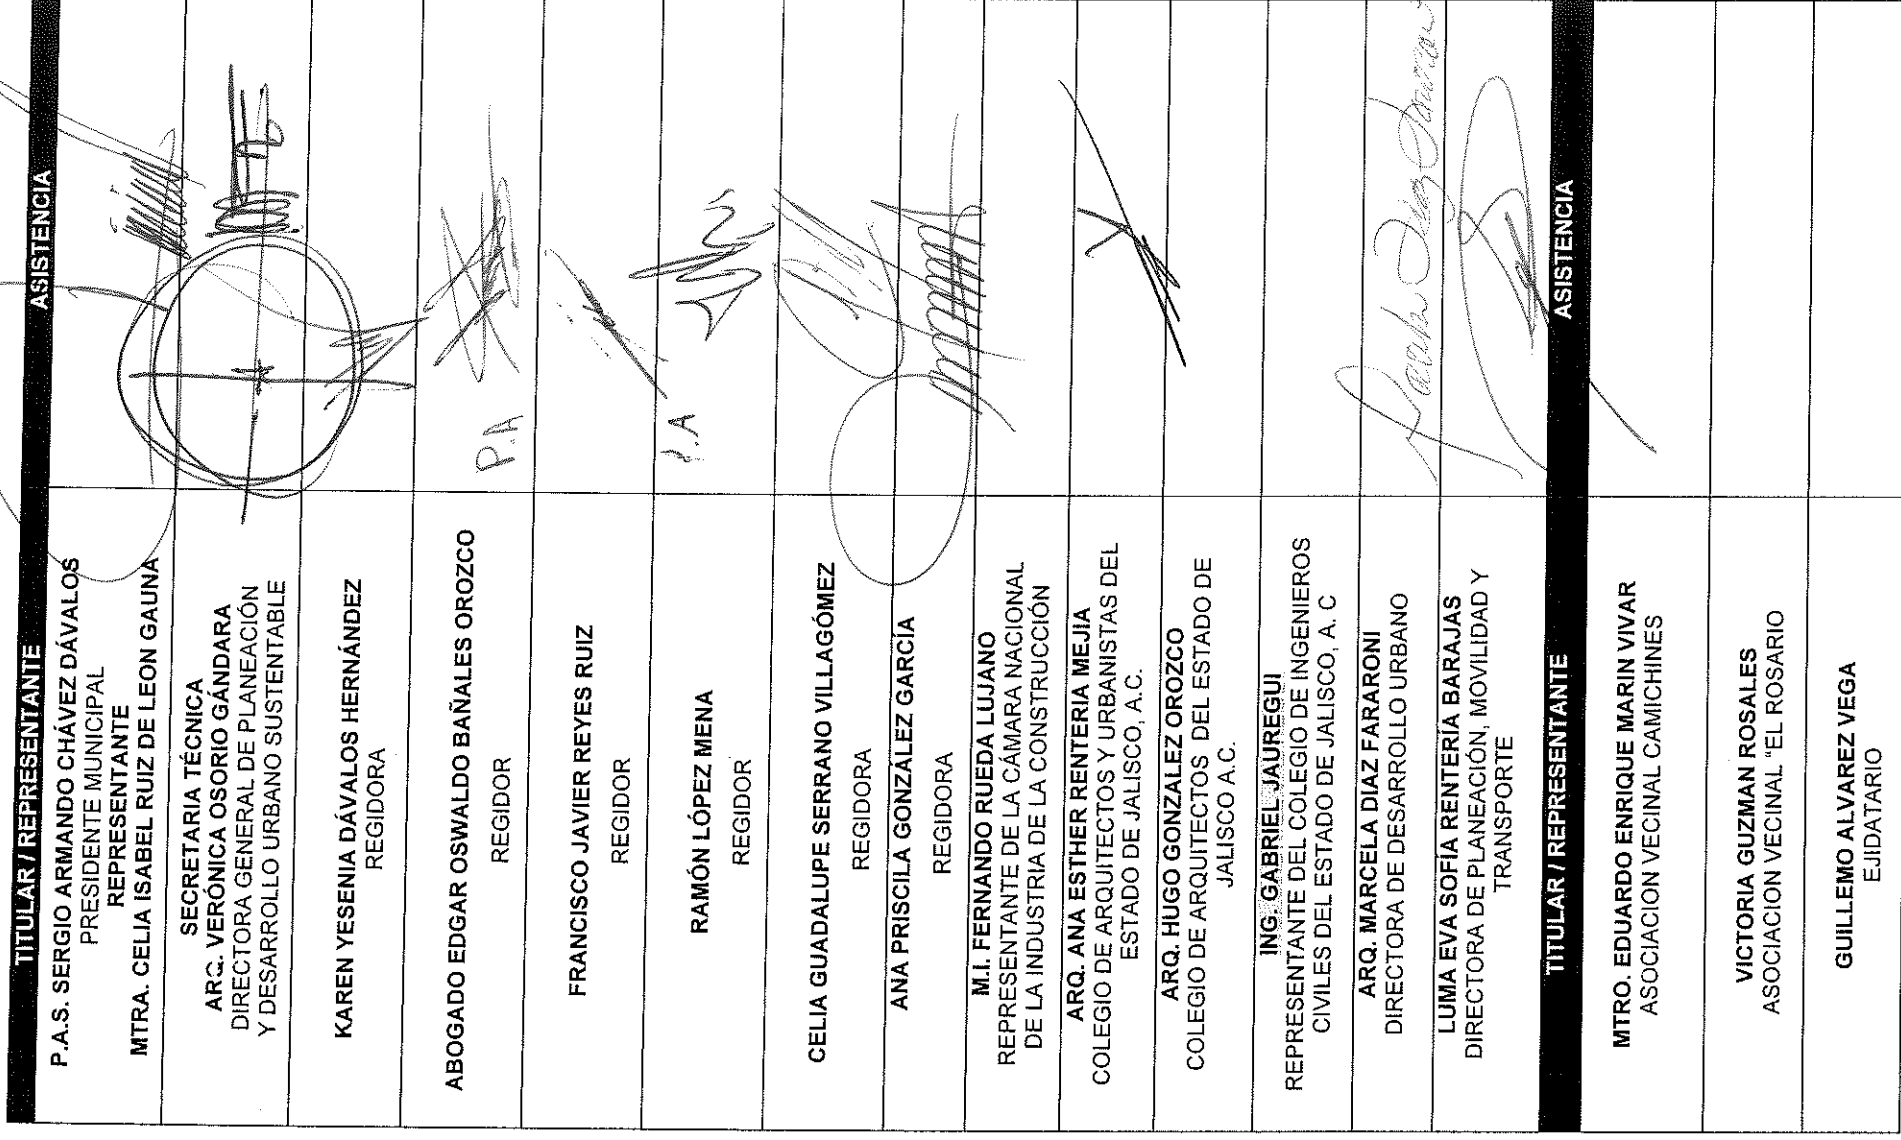 TITULAR / REPRESENTANTE ASISTENCIA
P.A.S. SERGIO ARMANDO CHÁVEZ DÁVALOS
PRESIDENTE MUNICIPAL
REPRESENTANTE
MTRA. CELIA ISABEL RUIZ DE LEON GAUNA
SECRETARIA TÉCNICA
ARQ. VERÓNICA OSORIO GÁNDARA
DIRECTORA GENERAL DE PLANEACIÓN
Y DESARROLLO URBANO SUSTENTABLE
KAREN YESENIA DÁVALOS HERNÁNDEZ
REGIDORA
ABOGADO EDGAR OSWALDO BAÑALES OROZCO
REGIDOR
P.A
FRANCISCO JAVIER REYES RUIZ
REGIDOR
RAMÓN LÓPEZ MENA
REGIDOR
CELIA GUADALUPE SERRANO VILLAGÓMEZ
REGIDORA
ANA PRISCILA GONZÁLEZ GARCÍA
REGIDORA
M.I. FERNANDO RUEDA LUJANO
REPRESENTANTE DE LA CÁMARA NACIONAL
DE LA INDUSTRIA DE LA CONSTRUCCIÓN
ARQ. ANA ESTHER RENTERIA MEJIA
COLEGIO DE ARQUITECTOS Y URBANISTAS DEL
ESTADO DE JALISCO, A.C.
ARQ. HUGO GONZALEZ OROZCO
COLEGIO DE ARQUITECTOS DEL ESTADO DE
JALISCO A.C.
ING. GABRIEL JAUREGUI
REPRESENTANTE DEL COLEGIO DE INGENIEROS
CIVILES DEL ESTADO DE JALISCO, A. C
ARQ. MARCELA DIAZ FARARONI
DIRECTORA DE DESARROLLO URBANO
LUMA EVA SOFÍA RENTERÍA BARAJAS
DIRECTORA DE PLANEACIÓN, MOVILIDAD Y
TRANSPORTE
TITULAR / REPRESENTANTE ASISTENCIA
MTRO. EDUARDO ENRIQUE MARIN VIVAR
ASOCIACION VECINAL CAMICHINES
VICTORIA GUZMAN ROSALES
ASOCIACION VECINAL "EL ROSARIO
GUILLEMO ALVAREZ VEGA
EJIDATARIO